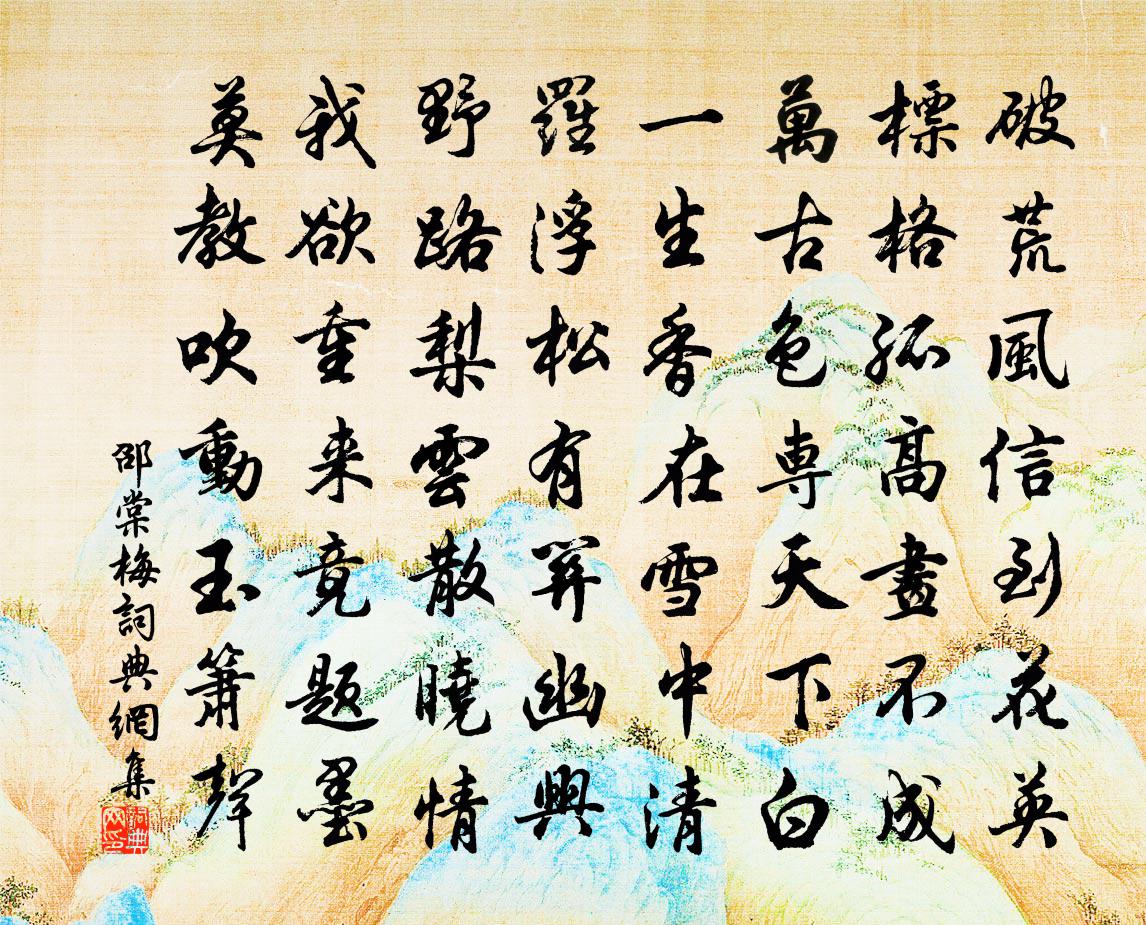 破荒風信到花英
標格孤高畫不成
萬古色専天下白
一生香在雪中清
羅浮松有第幽興
野路梨雲散曉情
我欲重来竟题墨
莫教吹動玉簫聲
邵棠梅詞典網集
詞典